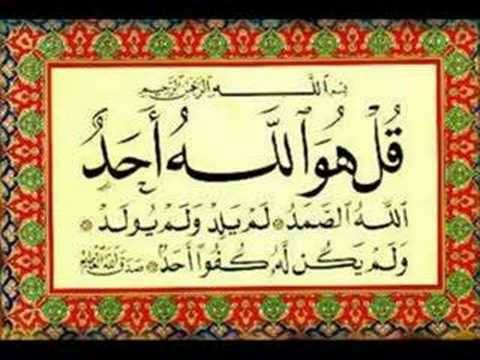 بِسْمِ ٱللَّهِ ٱلرَّحْمَٰنِ ٱلرَّحِيمِ
قُلْ هُوَ ٱللَّهُ أَحَدٌ
ٱللَّهُ ٱلصَّمَدُ * لَمْ يَلِدْ وَلَمْ يُولَدْ *
وَلَمْ يَكُن لَّهُ كُفُوًا أَحَدٌ * صَدَقَ ٱللَّهُ ٱلْعَظِيمُ